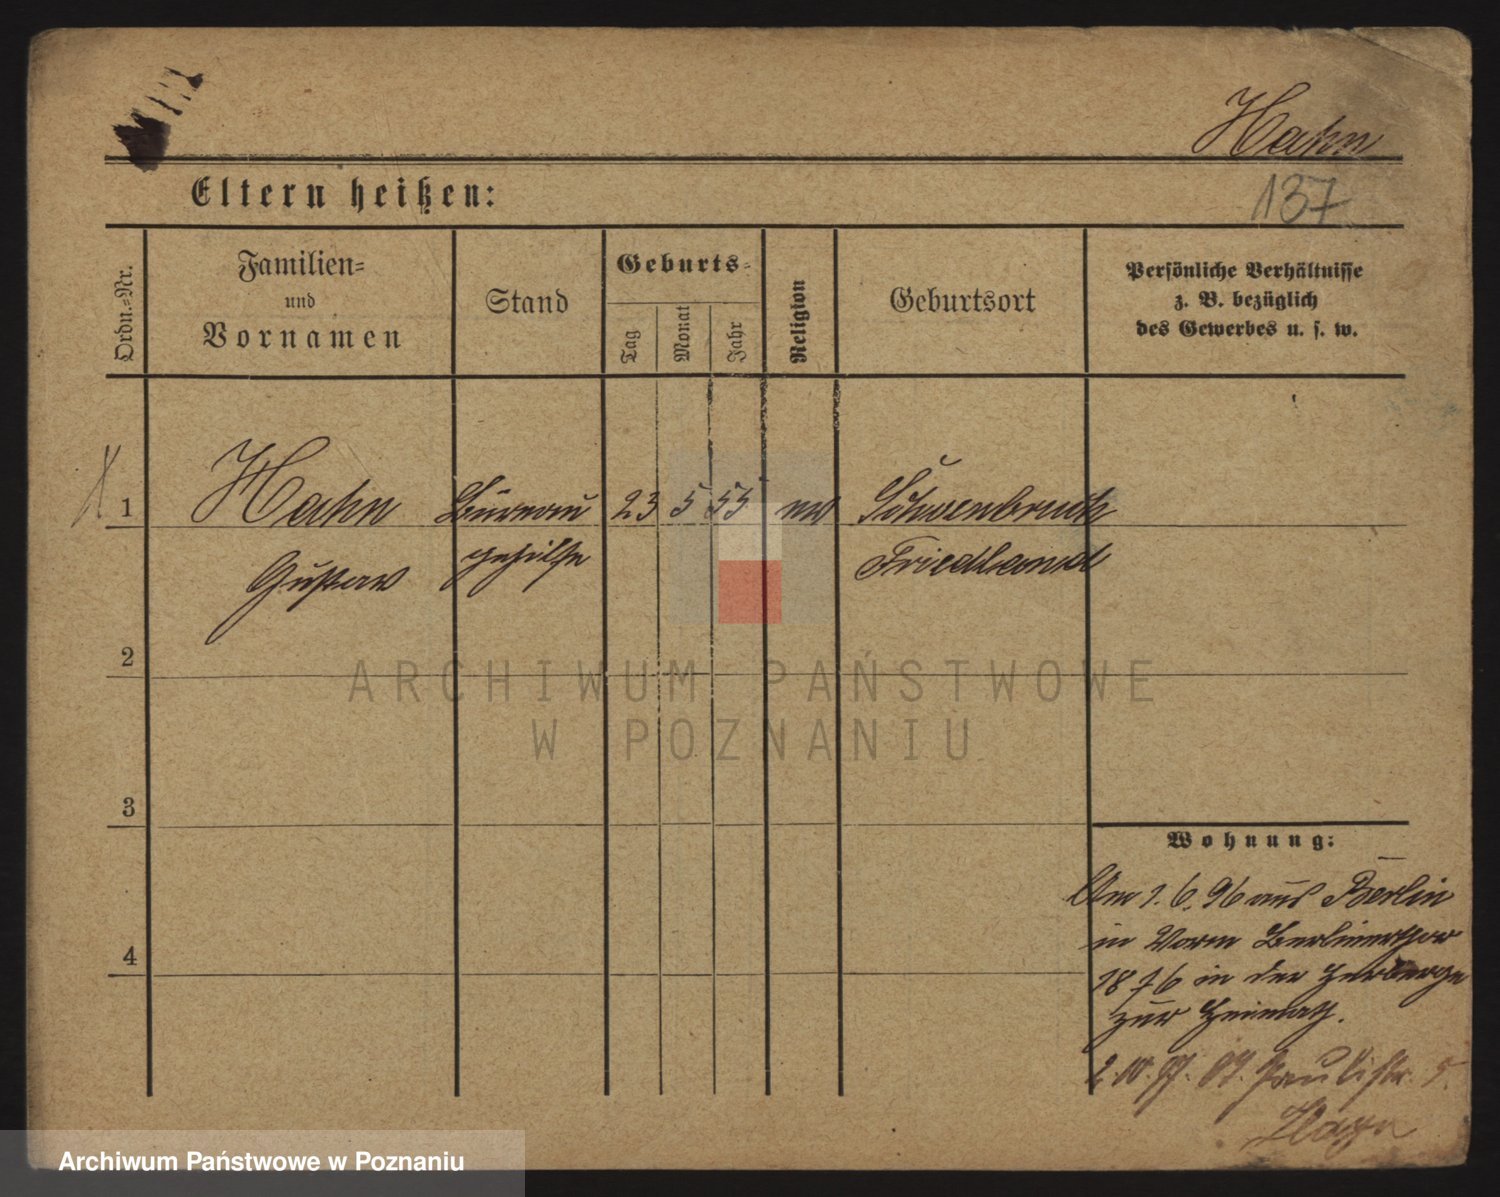 Hahn
137
Eltern heißen:
Ordn.-Nr.
Familien-
und
Vornamen
Stand
Geburts-
Tag
Monat
Jahr
Religion
Geburtsort
Persönliche Verhältnisse
z. B. bezüglich
des Gewerbes u. s. w.
1
Hahn
Büreau
23
5
55
Schoenbruch
Gustav
gehilfe
Friedland
2
ARCHIWUM PAŃSTWOWE
W POZNANIU
3
4
Wohnung:
Am 1.6.96 aus Berlin
in Berlinerthor
in der Herberge
zur Heimath.
2.10.97. Paulistr. 5.
Archiwum Państwowe w Poznaniu